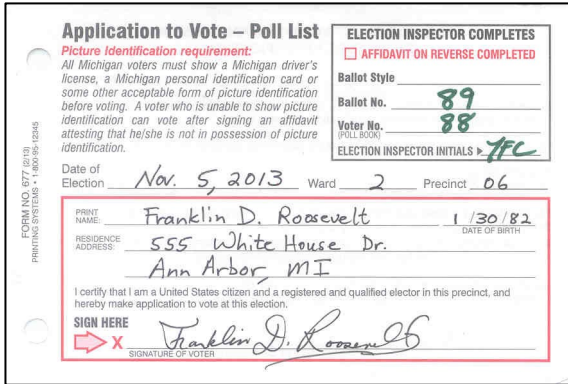 Application to Vote – Poll List
Picture Identification requirement:
All Michigan voters must show a Michigan driver's
license, a Michigan personal identification card or
some other acceptable form of picture identification
before voting. A voter who is unable to show picture
identification can vote after signing an affidavit
attesting that he/she is not in possession of picture
identification.
ELECTION INSPECTOR COMPLETES
AFFIDAVIT ON REVERSE COMPLETED
Ballot Style
Ballot No. 89
Voter No. 88
(POLL BOOK)
ELECTION INSPECTOR INITIALS
Date of
Election Nov. 5, 2013 Ward 2 Precinct 06
PRINT
NAME: Franklin D. Roosevelt 1/30/82
DATE OF BIRTH
RESIDENCE
ADDRESS: 555 White House Dr.
Ann Arbor, MI
I certify that I am a United States citizen and a registered and qualified elector in this precinct, and
hereby make application to vote at this election.
SIGN HERE
X Franklin D. Roosevelt
SIGNATURE OF VOTER
FORM NO. 677 (2/13)
PRINTING SYSTEMS • 1-800-95-12345